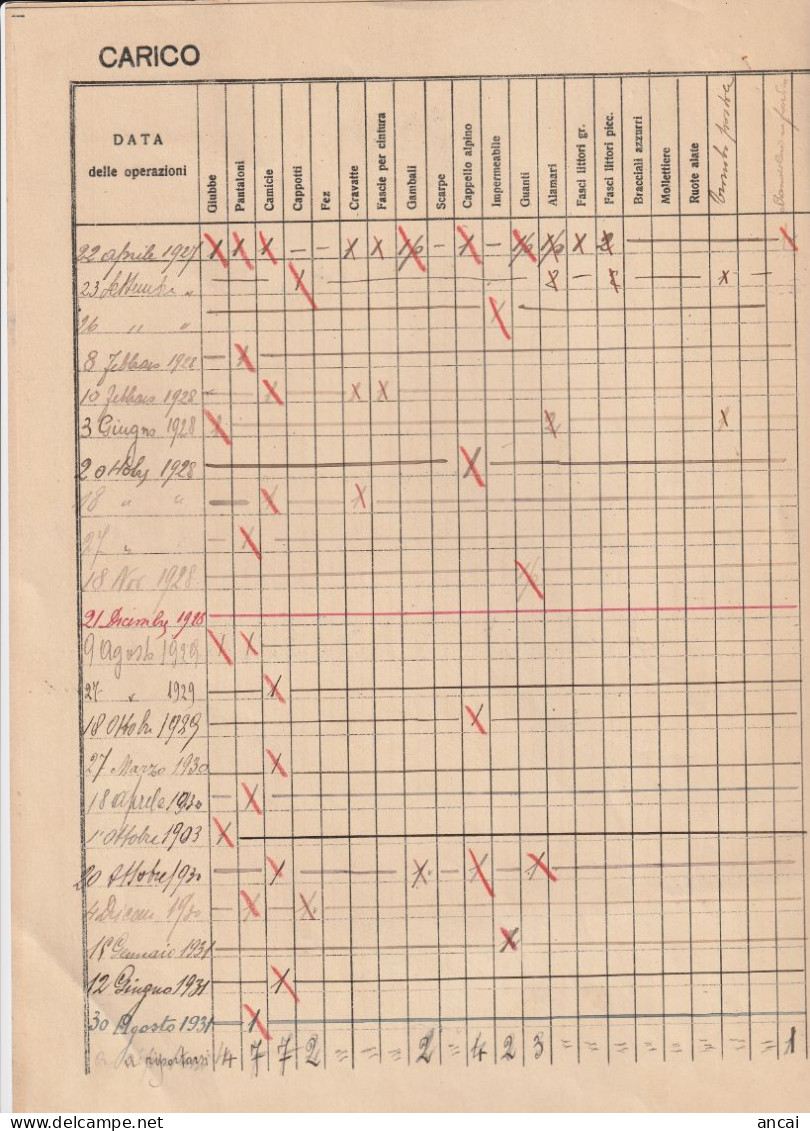 CARICO
DATA
delle operazioni
Giubbe
Pantaloni
Camicie
Cappotti
Fez
Cravatte
Fascie per cintura
Gambali
Scarpe
Cappello alpino
Impermeabile
Guanti
Alamari
Fasci littori gr.
Fasci littori picc.
Bracciali azzurri
Mollettiere
Ruote alate
22 aprile 1927 X X X — — X X — X — X —
23 Settembre „ — X — 8 — 8 — X —
26 „ „ — X —
8 Febbraio 1928 — X —
10 Febbraio 1928 — X — X X —
3 Giugno 1928 X — X
2 ottobre 1928 — X —
18 „ „ — X — X —
27 „ — X —
18 Nov 1928 —
21 Dicembre 1928 —
9 Agosto 1929 X X —
27 „ 1929 — X —
18 Ottobre 1929 — X —
27 Marzo 1930 — X —
18 aprile 1930 — X —
1° ottobre 1903 X —
20 ottobre 1930 — X — X X X —
4 Dicem 1930 — X — X —
15 Gennaio 1931 — X —
12 Giugno 1931 — X —
30 Agosto 1931 — 1 —
a riportarsi 4 7 7 2 = = = 2 = 4 2 3 = = = = = = = = 1
ancai